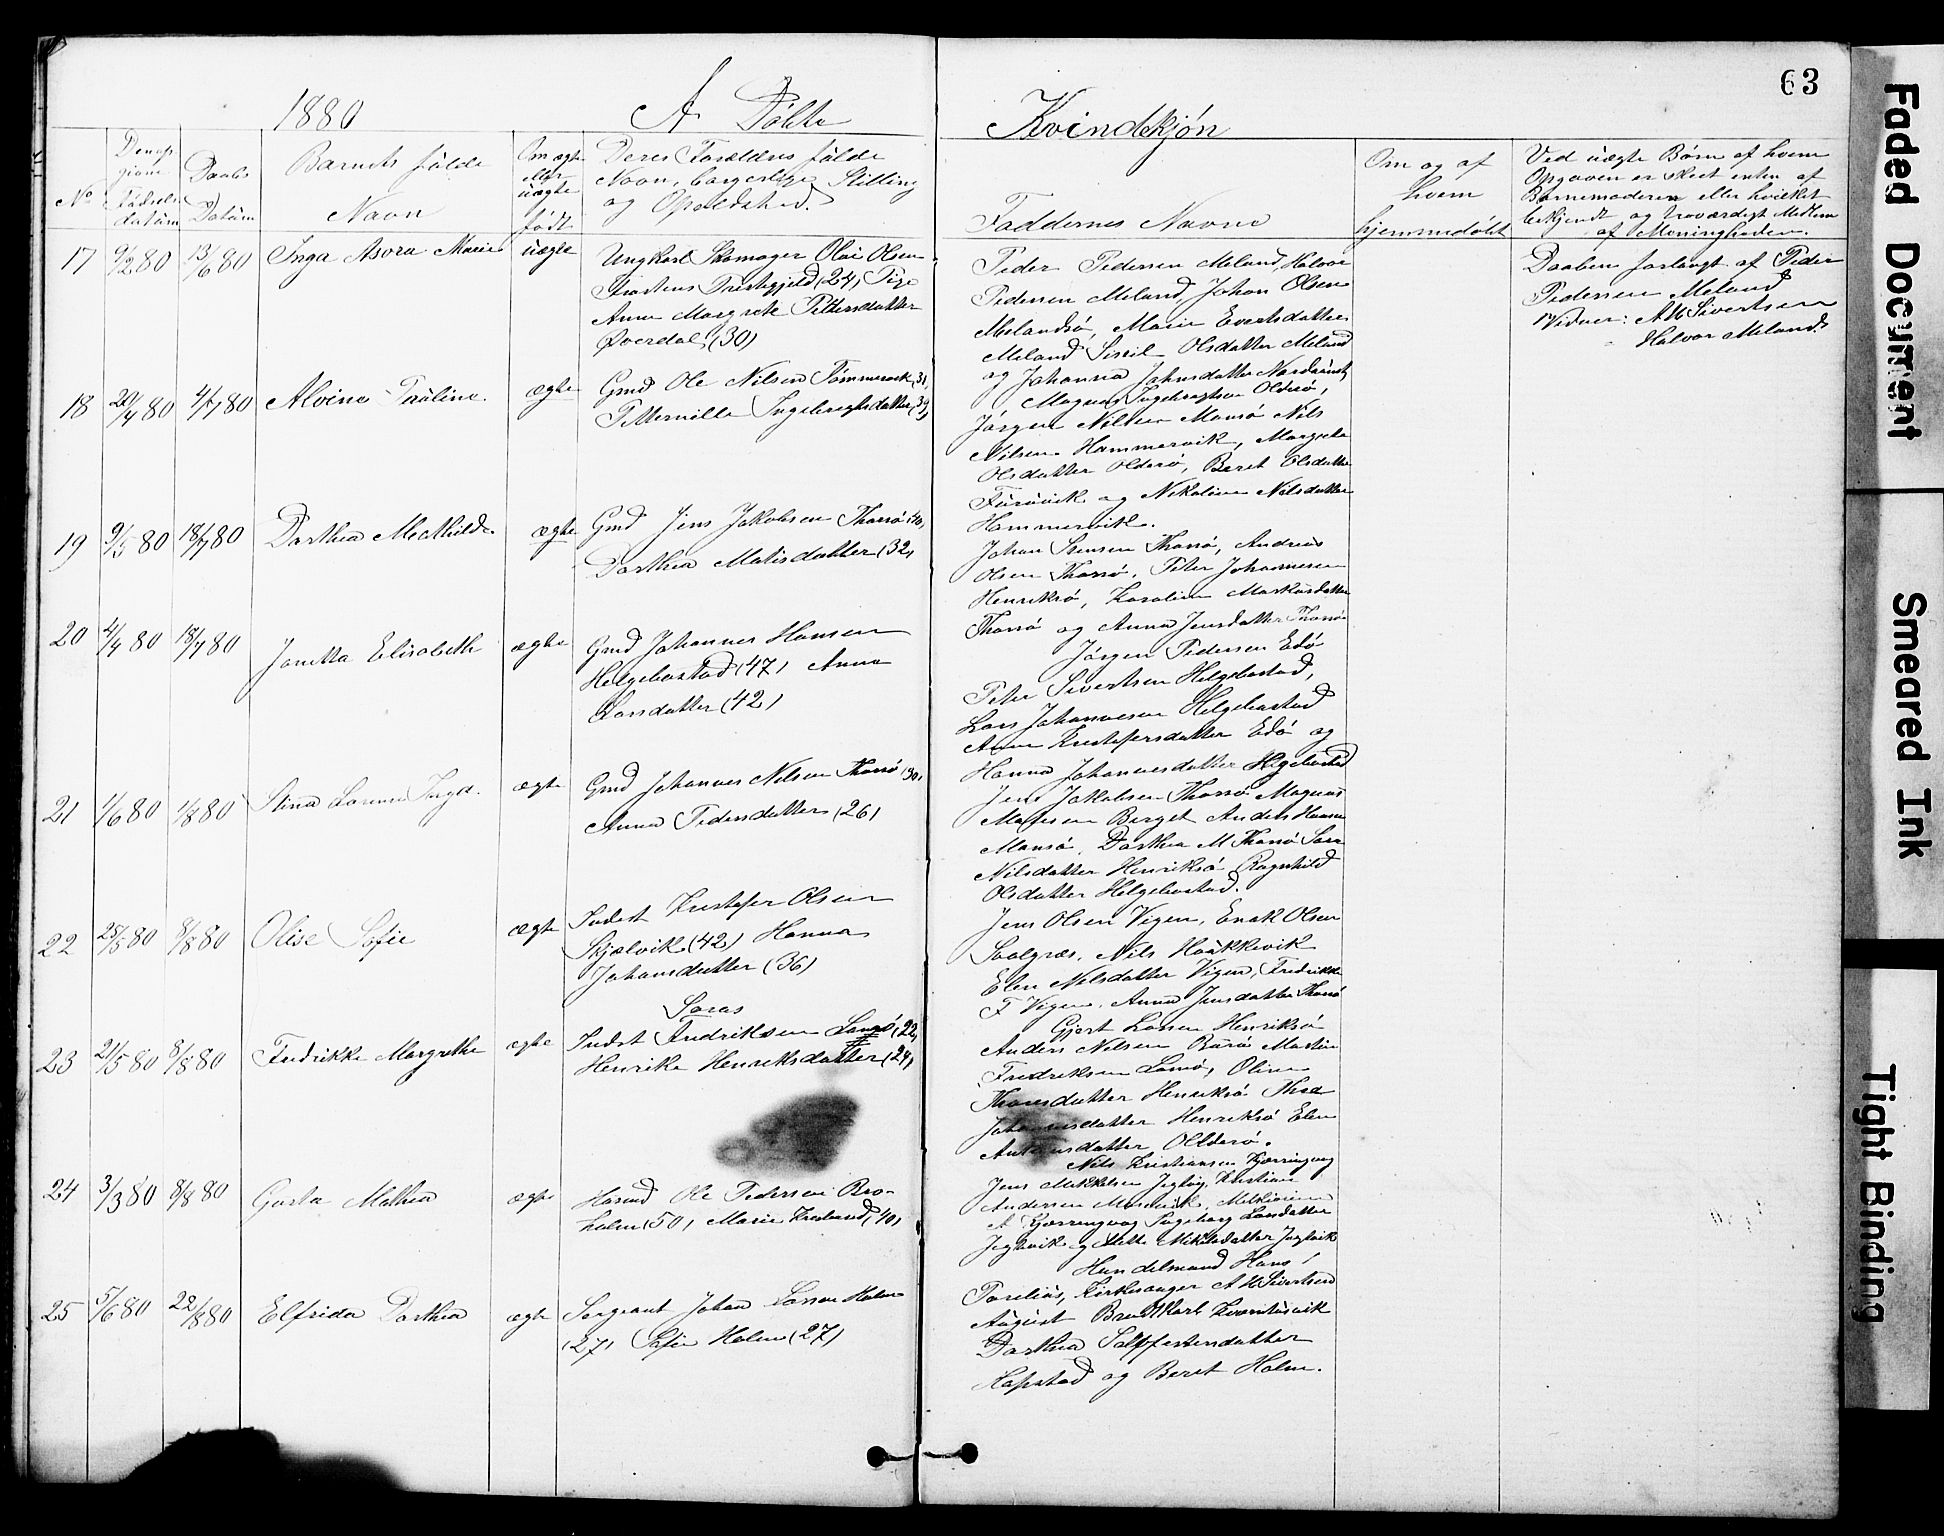 63
1880
A Döbte
Kvindekjön
No
Den op
givne
Födsels
datum
Daabs
Datum
Barnets fulde
Navn
Om ægte
eller
uægte
født
Deres Forældres fulde
Navn, borgerlige Stilling
og Opholdsted.
Faddernes Navne
Om og af
hvem
hjemmedøbt
Ved uægte Børn af hvem
Opgaven er skeet enten af
Barnemoderen eller hvilket
bekjendt og troværdigt Medlem
af Menigheden.
17 9/2 80 13/6 80 Inga Asora Marie uægte
Ungkarl Skomager Olai Olsen
Præstegjeld (24) Pige
Anne Margrete Pettersdatter
Øverdal (30)
Peder Pedersen Meland, Halvor
Pedersen Meland, Johan Olsen
Melandsö, Marie Evertsdatter
Meland Sissil Olsdatter Meland
og Johanna Johnsdatter
Daaben forlangt af Peder
Pedersen Meland
Vidner: A M Sivertsen
Halvor Meland
18 20/4 80 4/7 80 Alvine Pauline ægte
Gmd Ole Nilsen Tömmervik (31)
Petternille Ingebrigtsdatter (39)
Magnus Ingebrigtsen Olderö,
Jörgen Nilsen Mausö Nils
Nilsen Hammervik, Margreta
Olsdatter Olderö, Beret Olsdatter
og Nikoline Nilsdatter
Hammervik.
19 9/5 80 18/7 80 Dorthea Mechilde ægte
Gmd Jens Jakobsen Thorsö (40)
Dorthea Matisdatter (32)
Johan Stensen Thorsö, Andreas
Olsen Thorsö, Peter Johannesen
Henriksö, Karoline Markusdatter
Thorsö og Anna Jensdatter Thorsö
20 4/4 80 18/7 80 Janetta Elisabeth ægte
Gmd Johannes Hansen
Helgebostad (47) Anne
Larsdatter (42)
Jörgen Pedersen Edö
Peter Sivertsen Helgebostad,
Lars Johannesen Helgebostad
Anne Kristofersdatter Edö og
Hanna Johannesdatter Helgebostad
21 1/6 80 1/8 80 Stina Lorense Ingd. ægte
Gmd Johannes Nilsen Thorsö (30)
Anna Pedersdatter (26)
Jens Jakobsen Thorsö Magnus
Berget Anders Hansen
Mausö, Dorthea M Thorsö Sara
Nilsdatter Henriksö Ragnhild
Olsdatter Helgebostad.
22 25/5 80 8/8 80 Olise Sofie ægte
Inderst Kristofer Olsen
Skjælvik (42) Hanna
Johansdatter (36)
Jens Olsen Vigen, Enok Olsen
Nils
Elen Nilsdatter Vigen, Fredrikke
F Vigen, Anna Jensdatter Thorsö
23 21/5 80 8/8 80 Fredrikke Margrethe ægte
Loras
Inderst Fredriksen Lamö (22)
Henrike Henriksdatter (24)
Gjert Larsen Henriksö
Anders Nilsen Burö Martin
Fredriksen Lamö, Oline
Thoresdatter Henriksö Thea
Johannesdatter Henriksö Elen
Antonsdatter Olderö.
24 3/3 80 8/8 80 Gusta Mathea ægte
Husmd Ole Pedersen Bro-
holm (50), Marie (40)
Nils Kristiansen Kjerringvag
Jens Mikkelsen Kristian
Andersen
A Kjerringvag Ingeborg Larsdatter
Jegtvik og Mette Mikkelsdatter Jegtvik
25 5/6 80 22/8 80 Elfrida Dorthea ægte
Sergeant Johan Larsen Holm
(27) Sofie Holm (27)
Handelsmand Hans
Parelius, Kirkesanger A M Sivertsen
August Brandt Karl
Dorthea
Hopstad og Beret Holm.
Faded Document
Smeared Ink
Tight Binding